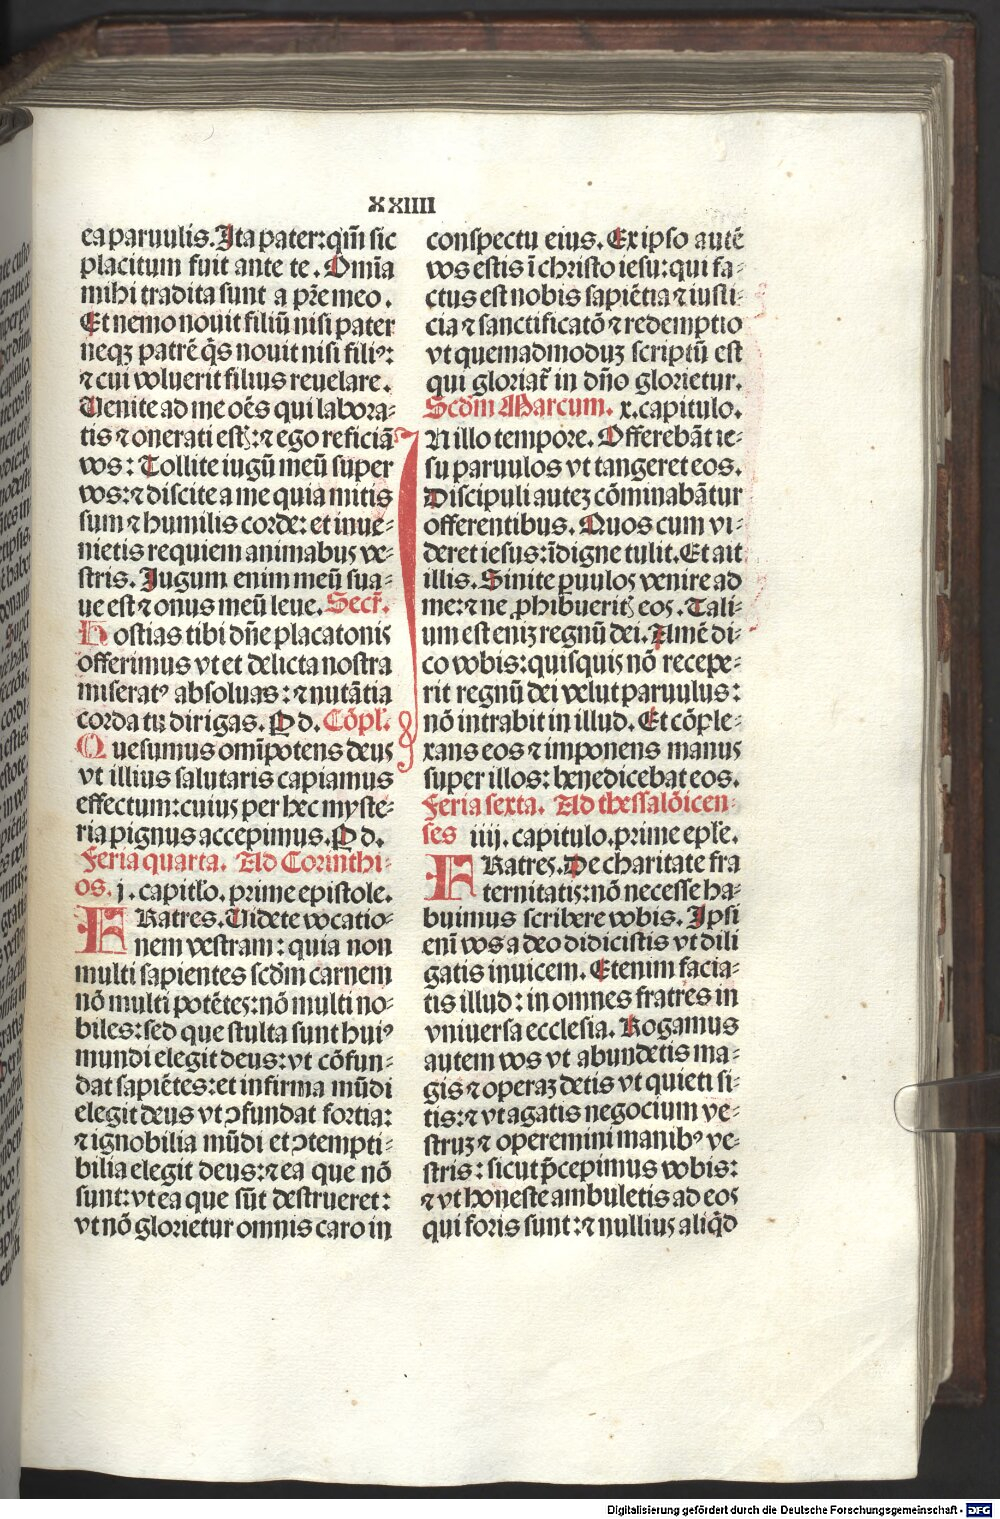 XXIIII
ea paruulis. Ita pater: qm̄ sic
placitum fuit ante te. Om̄ia
mihi tradita sunt a p̄re meo.
Et nemo nouit filiū nisi pater
neqꝫ patrē q̄s nouit nisi filiꝰ:
⁊ cui voluerit filius reuelare.
Uenite ad me oēs qui labora⸗
tis ⁊ onerati estꝭ: ⁊ ego reficiā
vos: Tollite iugū meū super
vos: ⁊ discite a me quia mitis
sum ⁊ humilis corde: et inue⸗
nietis requiem animabus ve⸗
stris. Jugum enim meū sua⸗
ue est ⁊ onus meū leue. Secr̄.
Hostias tibi dn̄e placatonis
offerimus vt et delicta nostra
miseratꝰ absoluas: ⁊ nutātia
corda tu dirigas. P d. Cōpl̄.
Quesumus om̄ipotens deus
vt illius salutaris capiamus
effectum: cuius per hec myste⸗
ria pignus accepimus. P d.
Feria quarta. Ad Corinthi⸗
os. j. capitl̄o. prime epistole.
FRatres. Uidete vocatio⸗
nem vestram: quia non
multi sapientes scd̄m carnem
nō multi potētes: nō multi no⸗
biles: sed que stulta sunt huiꝰ
mundi elegit deus: vt cōfun⸗
dat sapiētes: et infirma mūdi
elegit deus vt ↄfundat fortia:
⁊ ignobilia mūdi et ↄtempti⸗
bilia elegit deus: ⁊ ea que nō
sunt: vt ea que sūt destrueret:
vt nō glorietur omnis caro in
conspectu eius. Ex ipso autē
vos estis ī christo iesu: qui fa⸗
ctus est nobis sapiētia ⁊ iusti⸗
cia ⁊ sanctificatō ⁊ redemptio
vt quemadmoduꝫ scriptū est
qui gloriat̄ in dn̄o glorietur.
Scd̄m Marcum. x. capitulo.
IN illo tempore. Offerebāt ie⸗
su paruulos vt tangeret eos.
Discipuli auteꝫ cōminabātur
offerentibus. Quos cum vi⸗
deret iesus: īdigne tulit. Et ait
illis. Sinite ꝑuulos venire ad
me: ⁊ ne ꝓhibueritꝭ eos. Tali⸗
um est eniꝫ regnū dei. Amē di⸗
co vobis: quisquis nō recepe⸗
rit regnū dei velut paruulus:
nō intrabit in illud. Et cōple⸗
xans eos ⁊ imponens manus
super illos: benedicebat eos.
Feria sexta. Ad thessalōicen⸗
ses iiij. capitulo. prime epl̄e.
FRatres. De charitate fra
ternitatis: nō necesse ha⸗
buimus scribere vobis. Ipsi
eni̅ vos a deo didicistis vt dili
gatis inuicem. Etenim facia⸗
tis illud: in omnes fratres in
vniuersa ecclesia. Rogamus
autem vos vt abundetis ma⸗
gis ⁊ operaꝫ detis vt quieti si⸗
tis: ⁊ vt agatis negocium ve⸗
struꝫ ⁊ operemini manibꝰ ve⸗
stris: sicut p̄cepimus vobis:
⁊ vt honeste ambuletis ad eos
qui foris sunt: ⁊ nullius aliq̄d
Digitalisierung gefördert durch die Deutsche Forschungsgemeinschaft - DFG